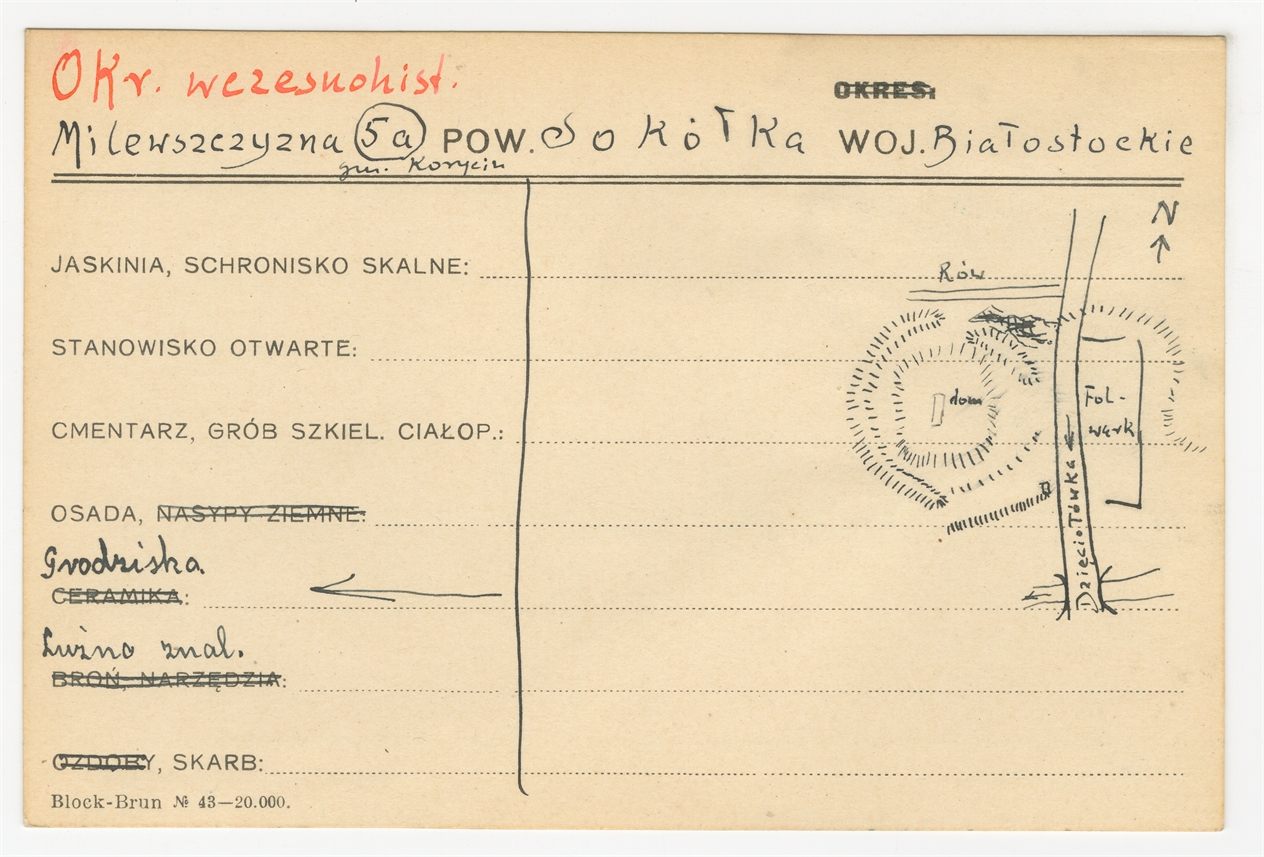 OKr. wczesnohist.
OKRES:
Milewszczyzna 5a POW. Sokółka WOJ. Białostockie
gm. Korycin
N
JASKINIA, SCHRONISKO SKALNE:
Rów
STANOWISKO OTWARTE:
dom
Fol-
wark
CMENTARZ, GRÓB SZKIEL. CIAŁOP.:
Dzięciołówka
OSADA, NASYPY ZIEMNE:
Grodziska
CERAMIKA:
Luźno znal.
BROŃ, NARZĘDZIA:
OZDOBY, SKARB:
Block-Brun № 43—20.000.